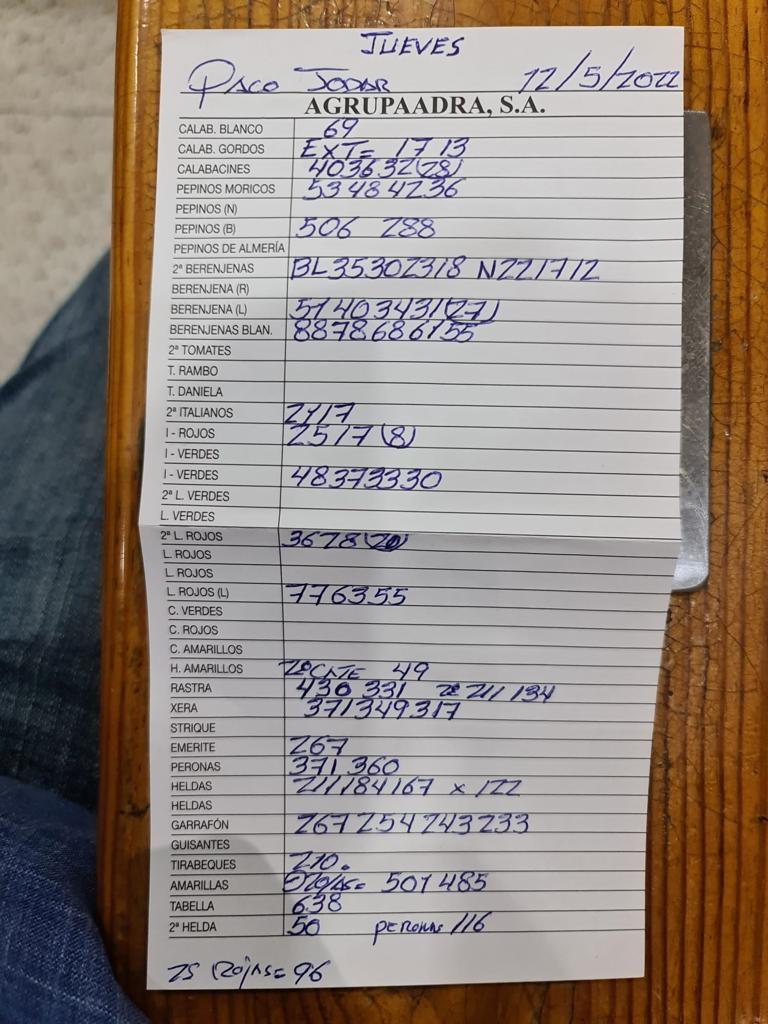 JUEVES
PACO JODAR 12/5/2022
AGRUPAADRA, S.A.
CALAB. BLANCO 69
CALAB. GORDOS EXT= 17 13
CALABACINES 403632(28)
PEPINOS MORICOS 53484236
PEPINOS (N)
PEPINOS (B) 506 288
PEPINOS DE ALMERÍA
2ª BERENJENAS BL35302318 N221712
BERENJENA (R)
BERENJENA (L) 51403431(27)
BERENJENAS BLAN. 8878686155
2ª TOMATES
T. RAMBO
T. DANIELA
2ª ITALIANOS 2117
I - ROJOS 2517(8)
I - VERDES
I - VERDES 48373330
2ª L. VERDES
L. VERDES
2ª L. ROJOS 3628(20)
L. ROJOS
L. ROJOS
L. ROJOS (L) 776355
C. VERDES
C. ROJOS
C. AMARILLOS
H. AMARILLOS 49
RASTRA 430 331 2ª 211 134
XERA 371349317
STRIQUE
EMERITE 267
PERONAS 371 360
HELDAS 211184167 x 122
HELDAS
GARRAFÓN 267254243233
GUISANTES
TIRABEQUES 210.
AMARILLAS 501 485
TABELLA 638
2ª HELDA 50 PERONAS 116
ROJAS= 96